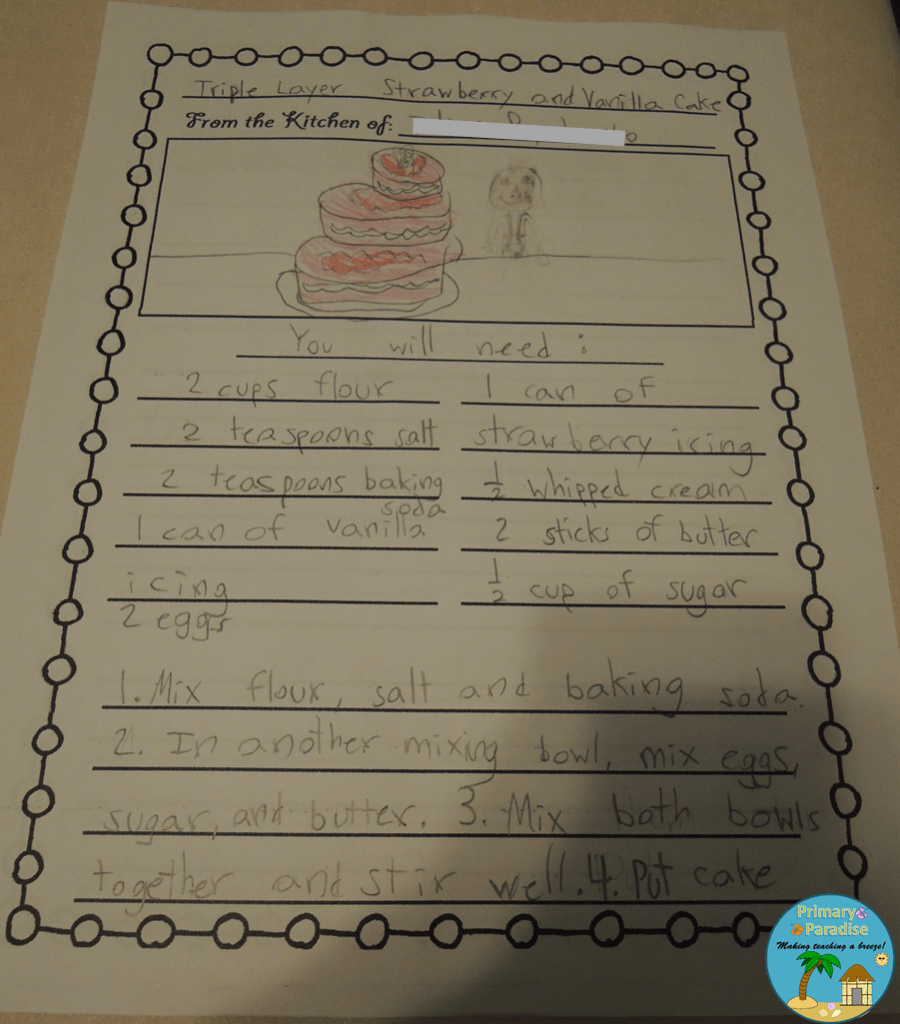 Triple Layer Strawberry and Vanilla Cake
From the Kitchen of:
You will need:
2 cups flour
2 teaspoons salt
2 teaspoons baking
soda
1 can of vanilla
icing
2 eggs
1 can of
strawberry icing
1/2 whipped cream
2 sticks of butter
1/2 cup of sugar
1. Mix flour, salt and baking soda.
2. In another mixing bowl, mix eggs,
sugar, and butter. 3. Mix both bowls
together and stir well. 4. Put cake
Primary
Paradise
Making teaching a breeze!